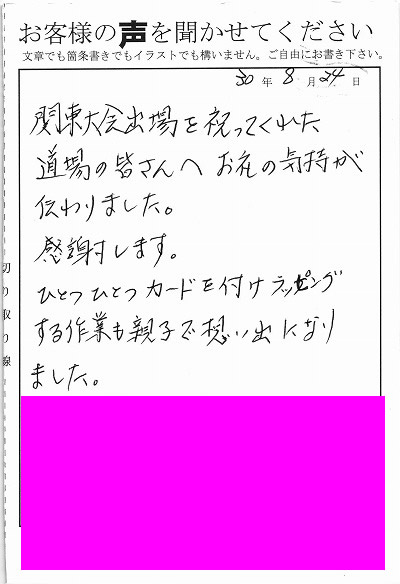 お客様の声を聞かせてください
文章でも箇条書きでもイラストでも構いません。ご自由にお書き下さい。
30年8月24日
関東大会出場を祝ってくれた
道場の皆さんへ お礼の気持が
伝わりました。
感謝します。
ひとつひとつ カードを付けラッピング
する作業も親子で想い出になり
ました。
切り取り線